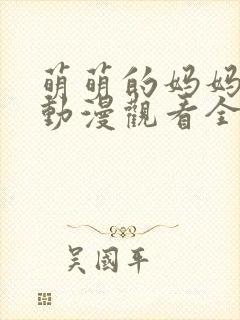 萌萌的妈妈
動漫觀看全
吴國平